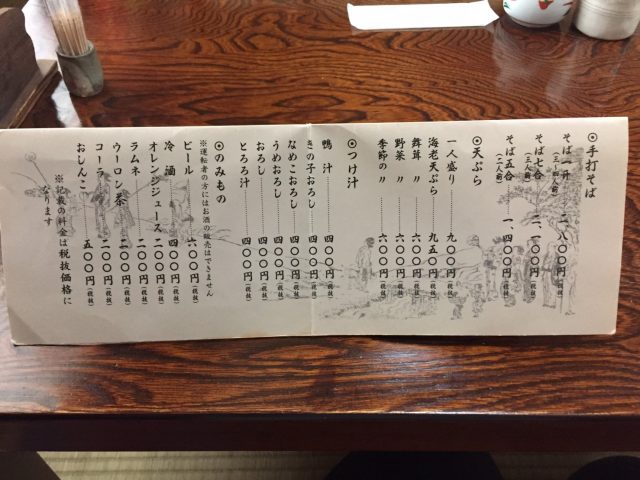 ◉手打そば
そば一升 二、八〇〇円(税抜)
(三〜四人前)
そば七合 二、一〇〇円(税抜)
(三人前)
そば五合 一、四〇〇円(税抜)
(二人前)
◉天ぷら
一人盛り 九〇〇円(税抜)
海老天ぷら 九五〇円(税抜)
舞茸 〃 六〇〇円(税抜)
野菜 〃 六〇〇円(税抜)
季節の 〃 六〇〇円(税抜)
◉つけ汁
鴨汁 四〇〇円(税抜)
きの子おろし 四〇〇円(税抜)
なめこおろし 四〇〇円(税抜)
うめおろし 四〇〇円(税抜)
おろし 四〇〇円(税抜)
とろろ汁 四〇〇円(税抜)
◉のみもの
※運転者の方にはお酒の販売はできません
ビール 六〇〇円(税抜)
冷酒 四〇〇円(税抜)
オレンジジュース 二〇〇円(税抜)
ラムネ 二〇〇円(税抜)
ウーロン茶 二〇〇円(税抜)
コーラ 二〇〇円(税抜)
おしんこ 五〇〇円(税抜)
※記載の料金は税抜価格に
なります